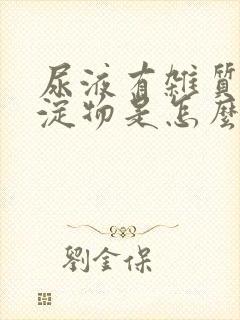 尿液有雜質
淀物是怎麼
劉金保